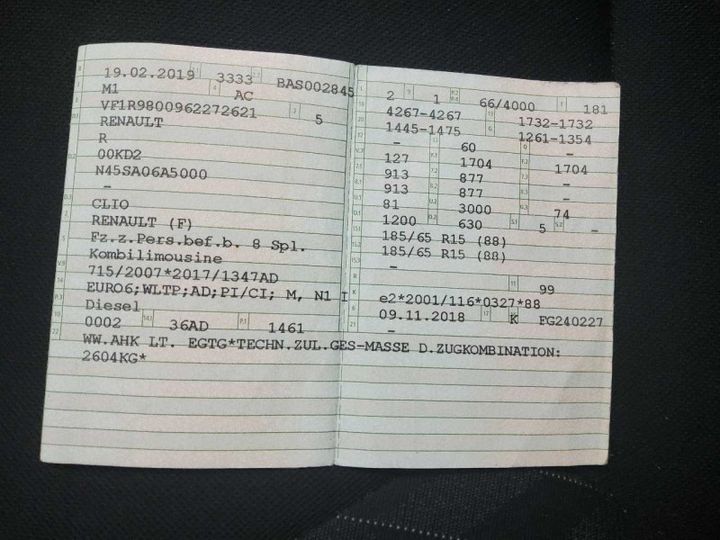 19.02.2019 3333 BAS002845
M1 AC
VF1R9800962272621 5
RENAULT
R
00KD2
N45SA06A5000
-
CLIO
RENAULT (F)
Fz.z.Pers.bef.b. 8 Spl.
Kombilimousine
715/2007*2017/1347AD
EURO6;WLTP;AD;PI/CI; M, N1 I
Diesel
0002 36AD 1461
WW.AHK LT. EGTG*TECHN.ZUL.GES-MASSE D.ZUGKOMBINATION:
2604KG*
2 1 66/4000 181
4267-4267 1732-1732
1445-1475 1261-1354
- 60 -
127 1704 1704
913 877 -
913 877 -
81 3000 74
1200 630 5 -
185/65 R15 (88)
185/65 R15 (88)
-
99
e2*2001/116*0327*88
09.11.2018 K FG240227
-